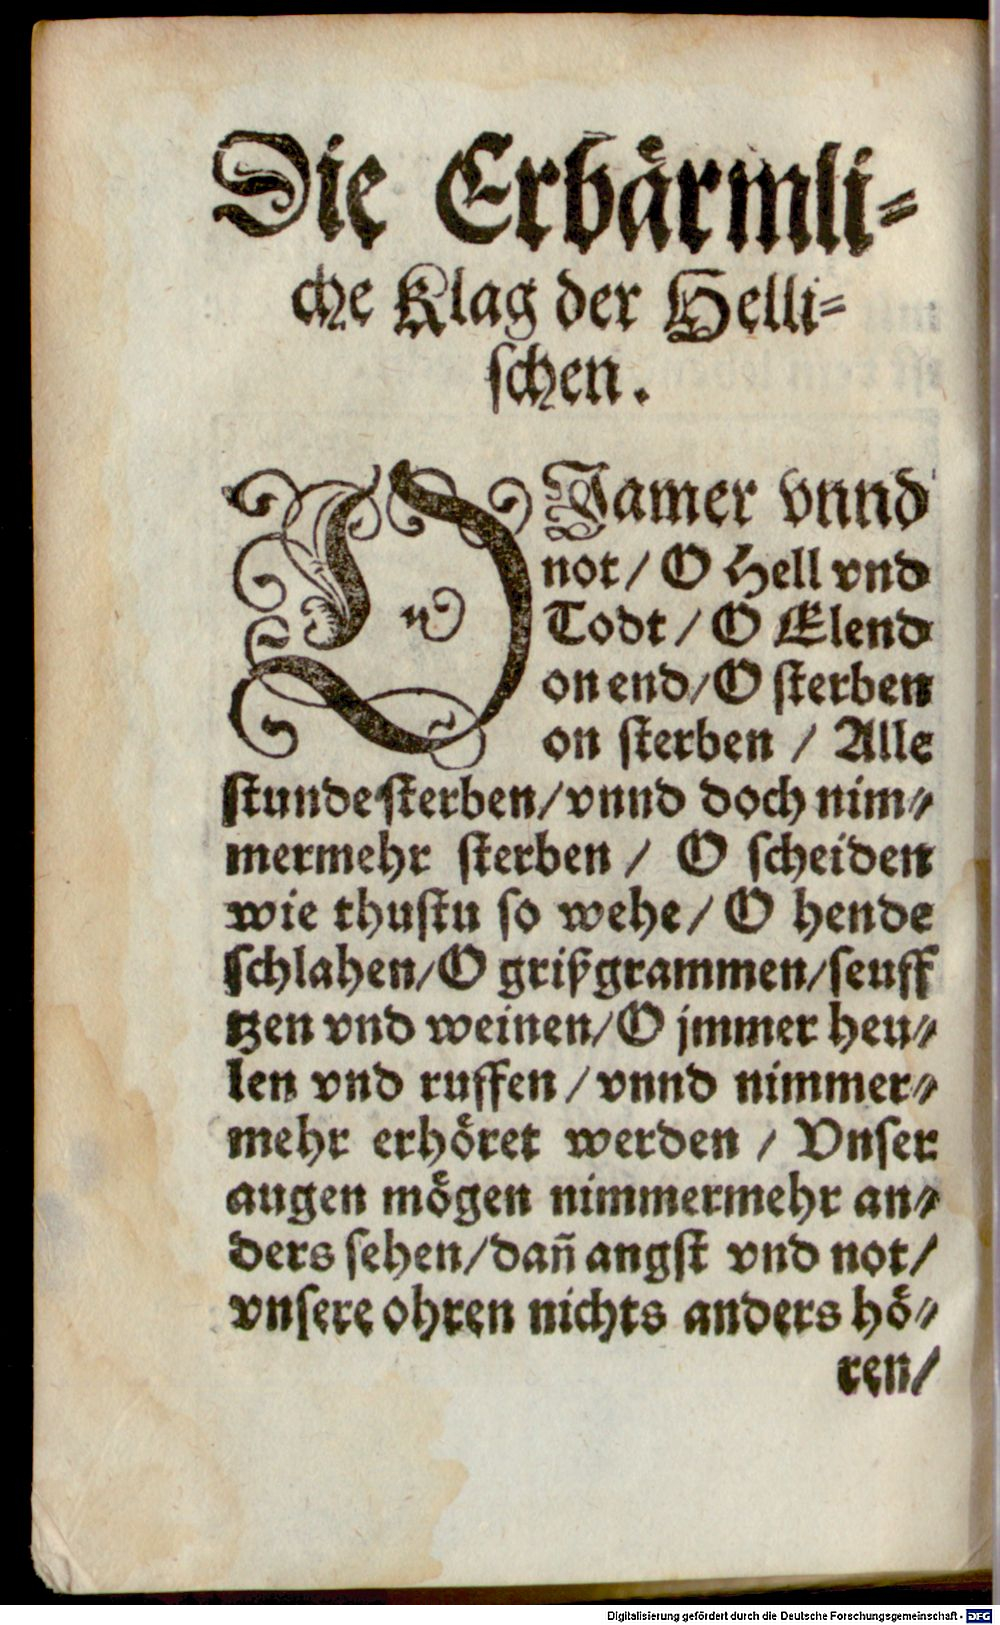 Die Erbärmli-
che Klag der Helli-
schen.
O Jamer vnnd
not/ O Hell vnd
Todt/ O Elend
on end/ O sterben
on sterben / Alle
stunde sterben/ vnnd doch nim-
mermehr sterben / O scheiden
wie thustu so wehe/ O hende
schlahen/ O grißgrammen/ seuff
tzen vnd weinen/ O jmmer heu-
len vnd ruffen / vnnd nimmer-
mehr erhöret werden / Vnser
augen mögen nimmermehr an-
ders sehen/ dañ angst vnd not/
vnsere ohren nichts anders hö-
ren/
Digitalisierung gefördert durch die Deutsche Forschungsgemeinschaft - DFG